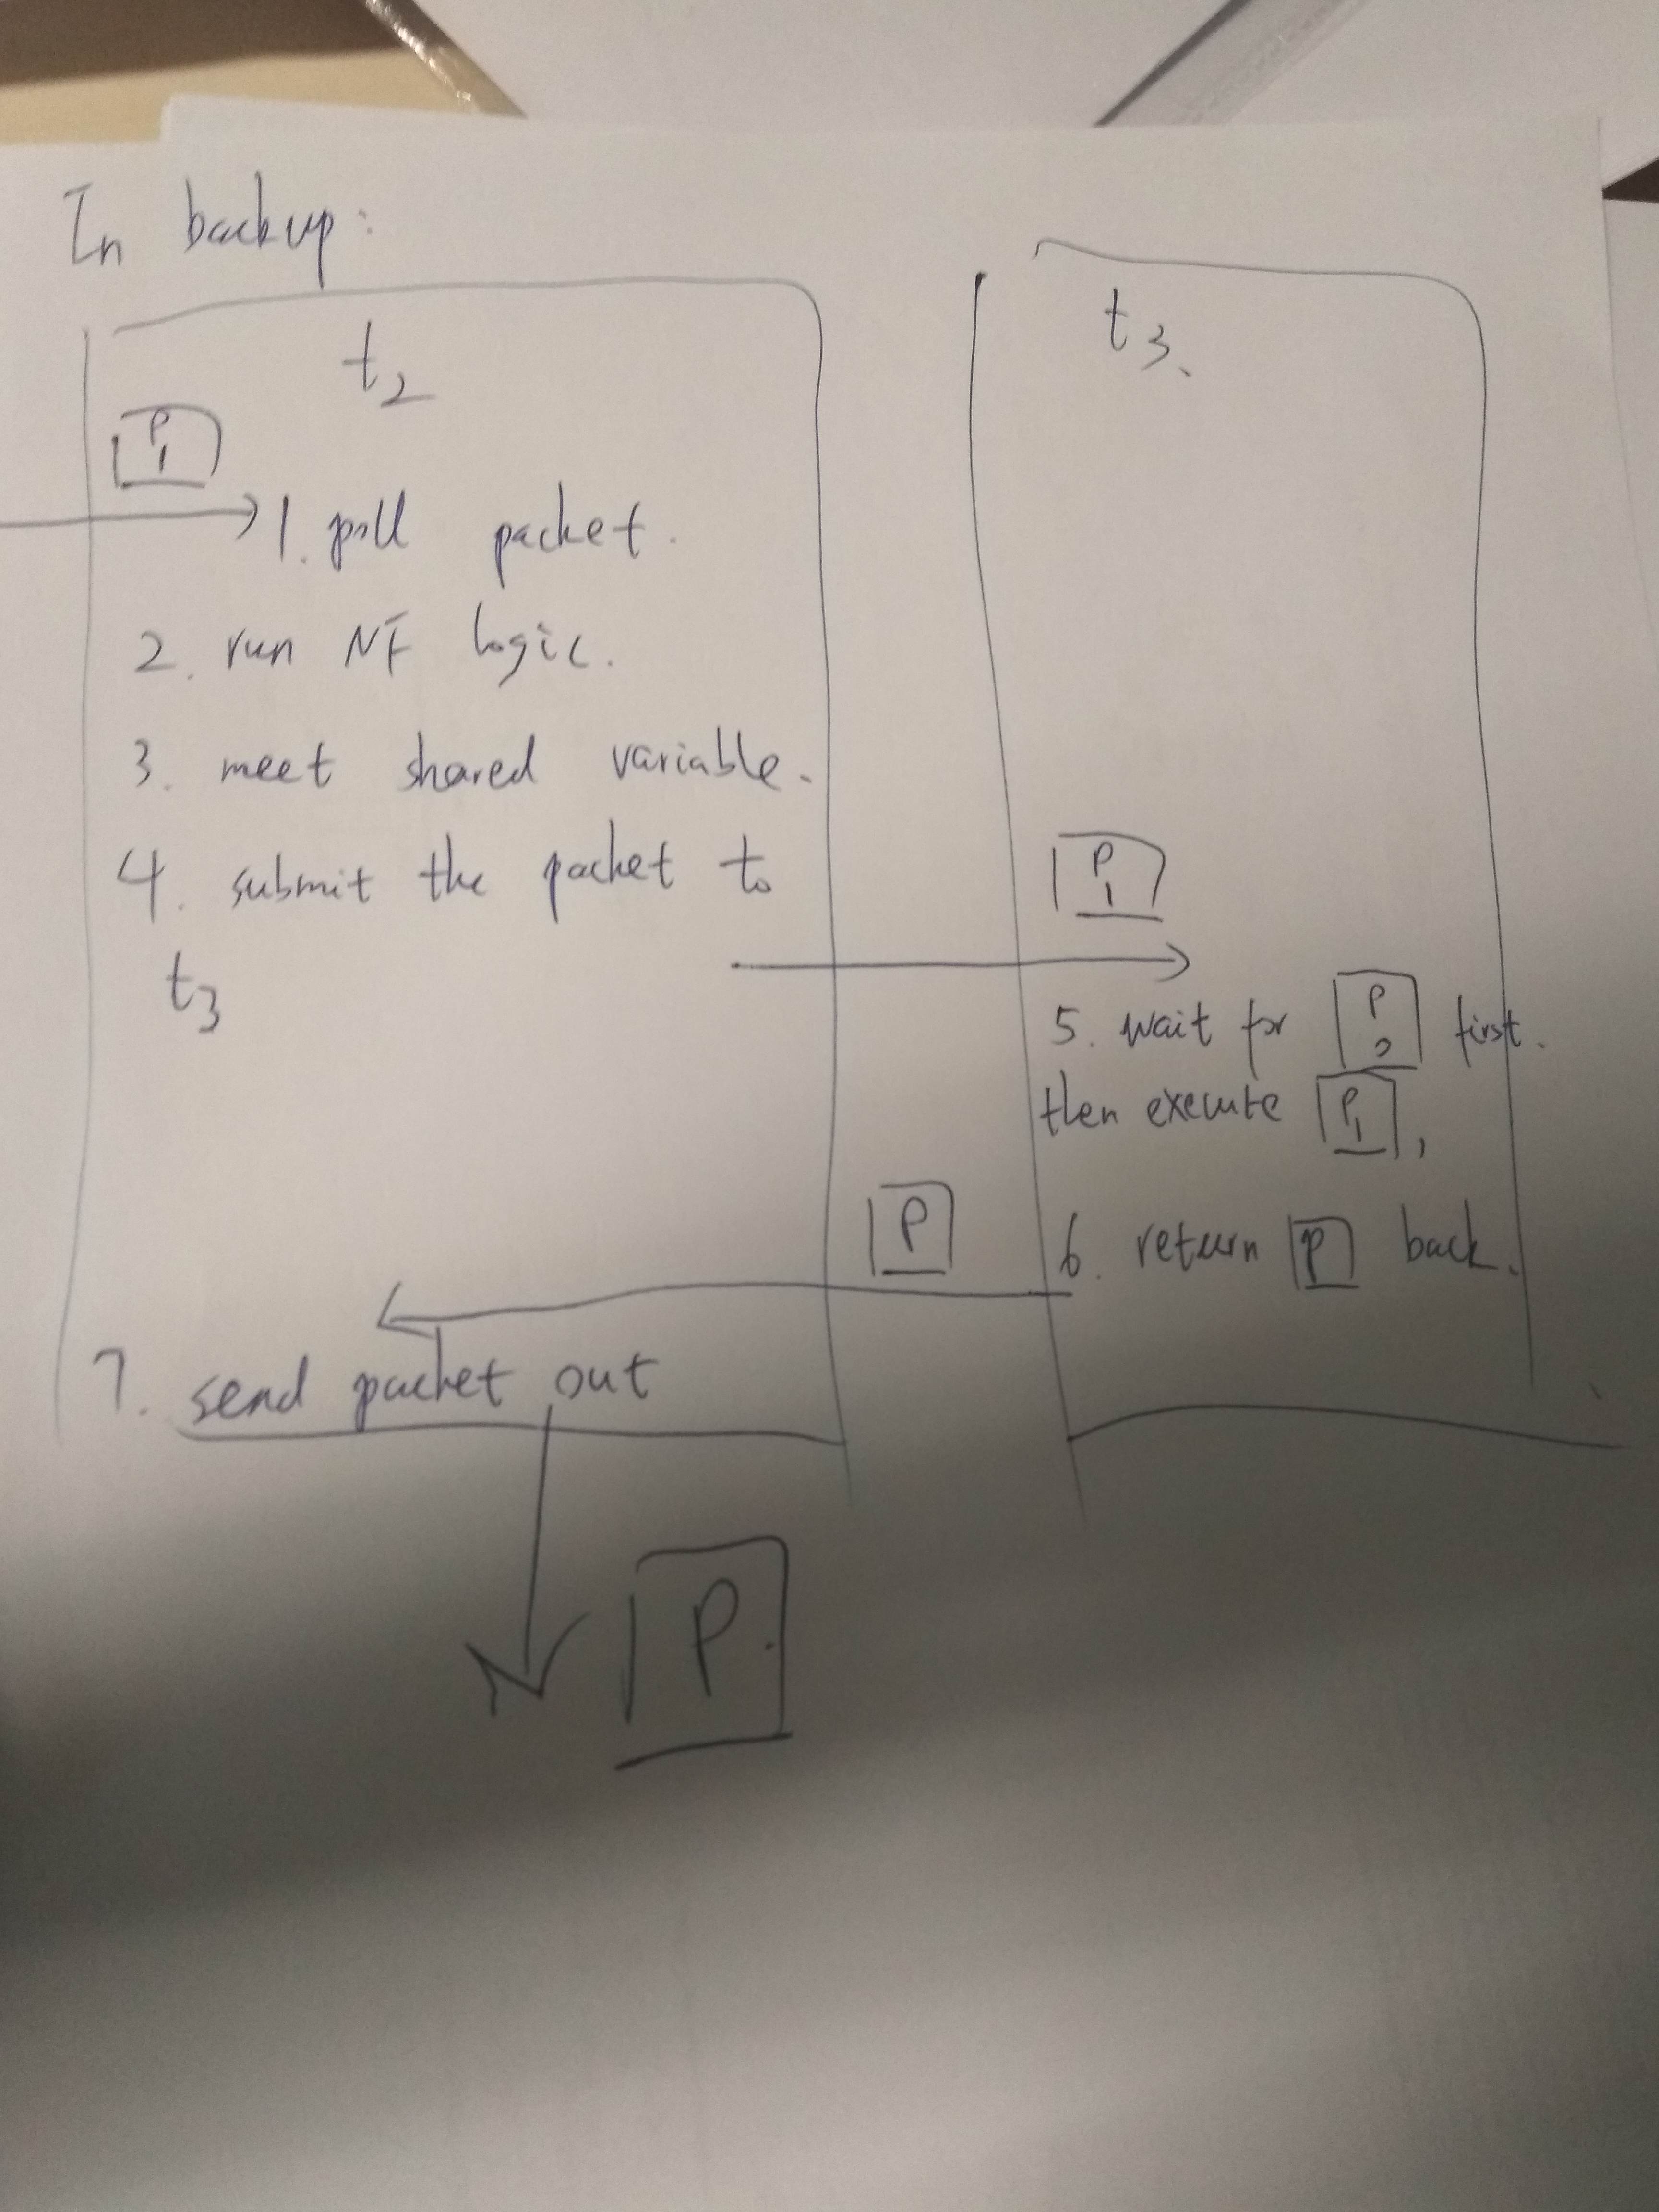 In backup:
t2
t3.
P1
1. poll packet.
2. run NF logic.
3. meet shared variable.
4. submit the packet to
t3
P1
5. wait for P0 first.
then execute P1,
P
6. return P back.
7. send packet out
P.